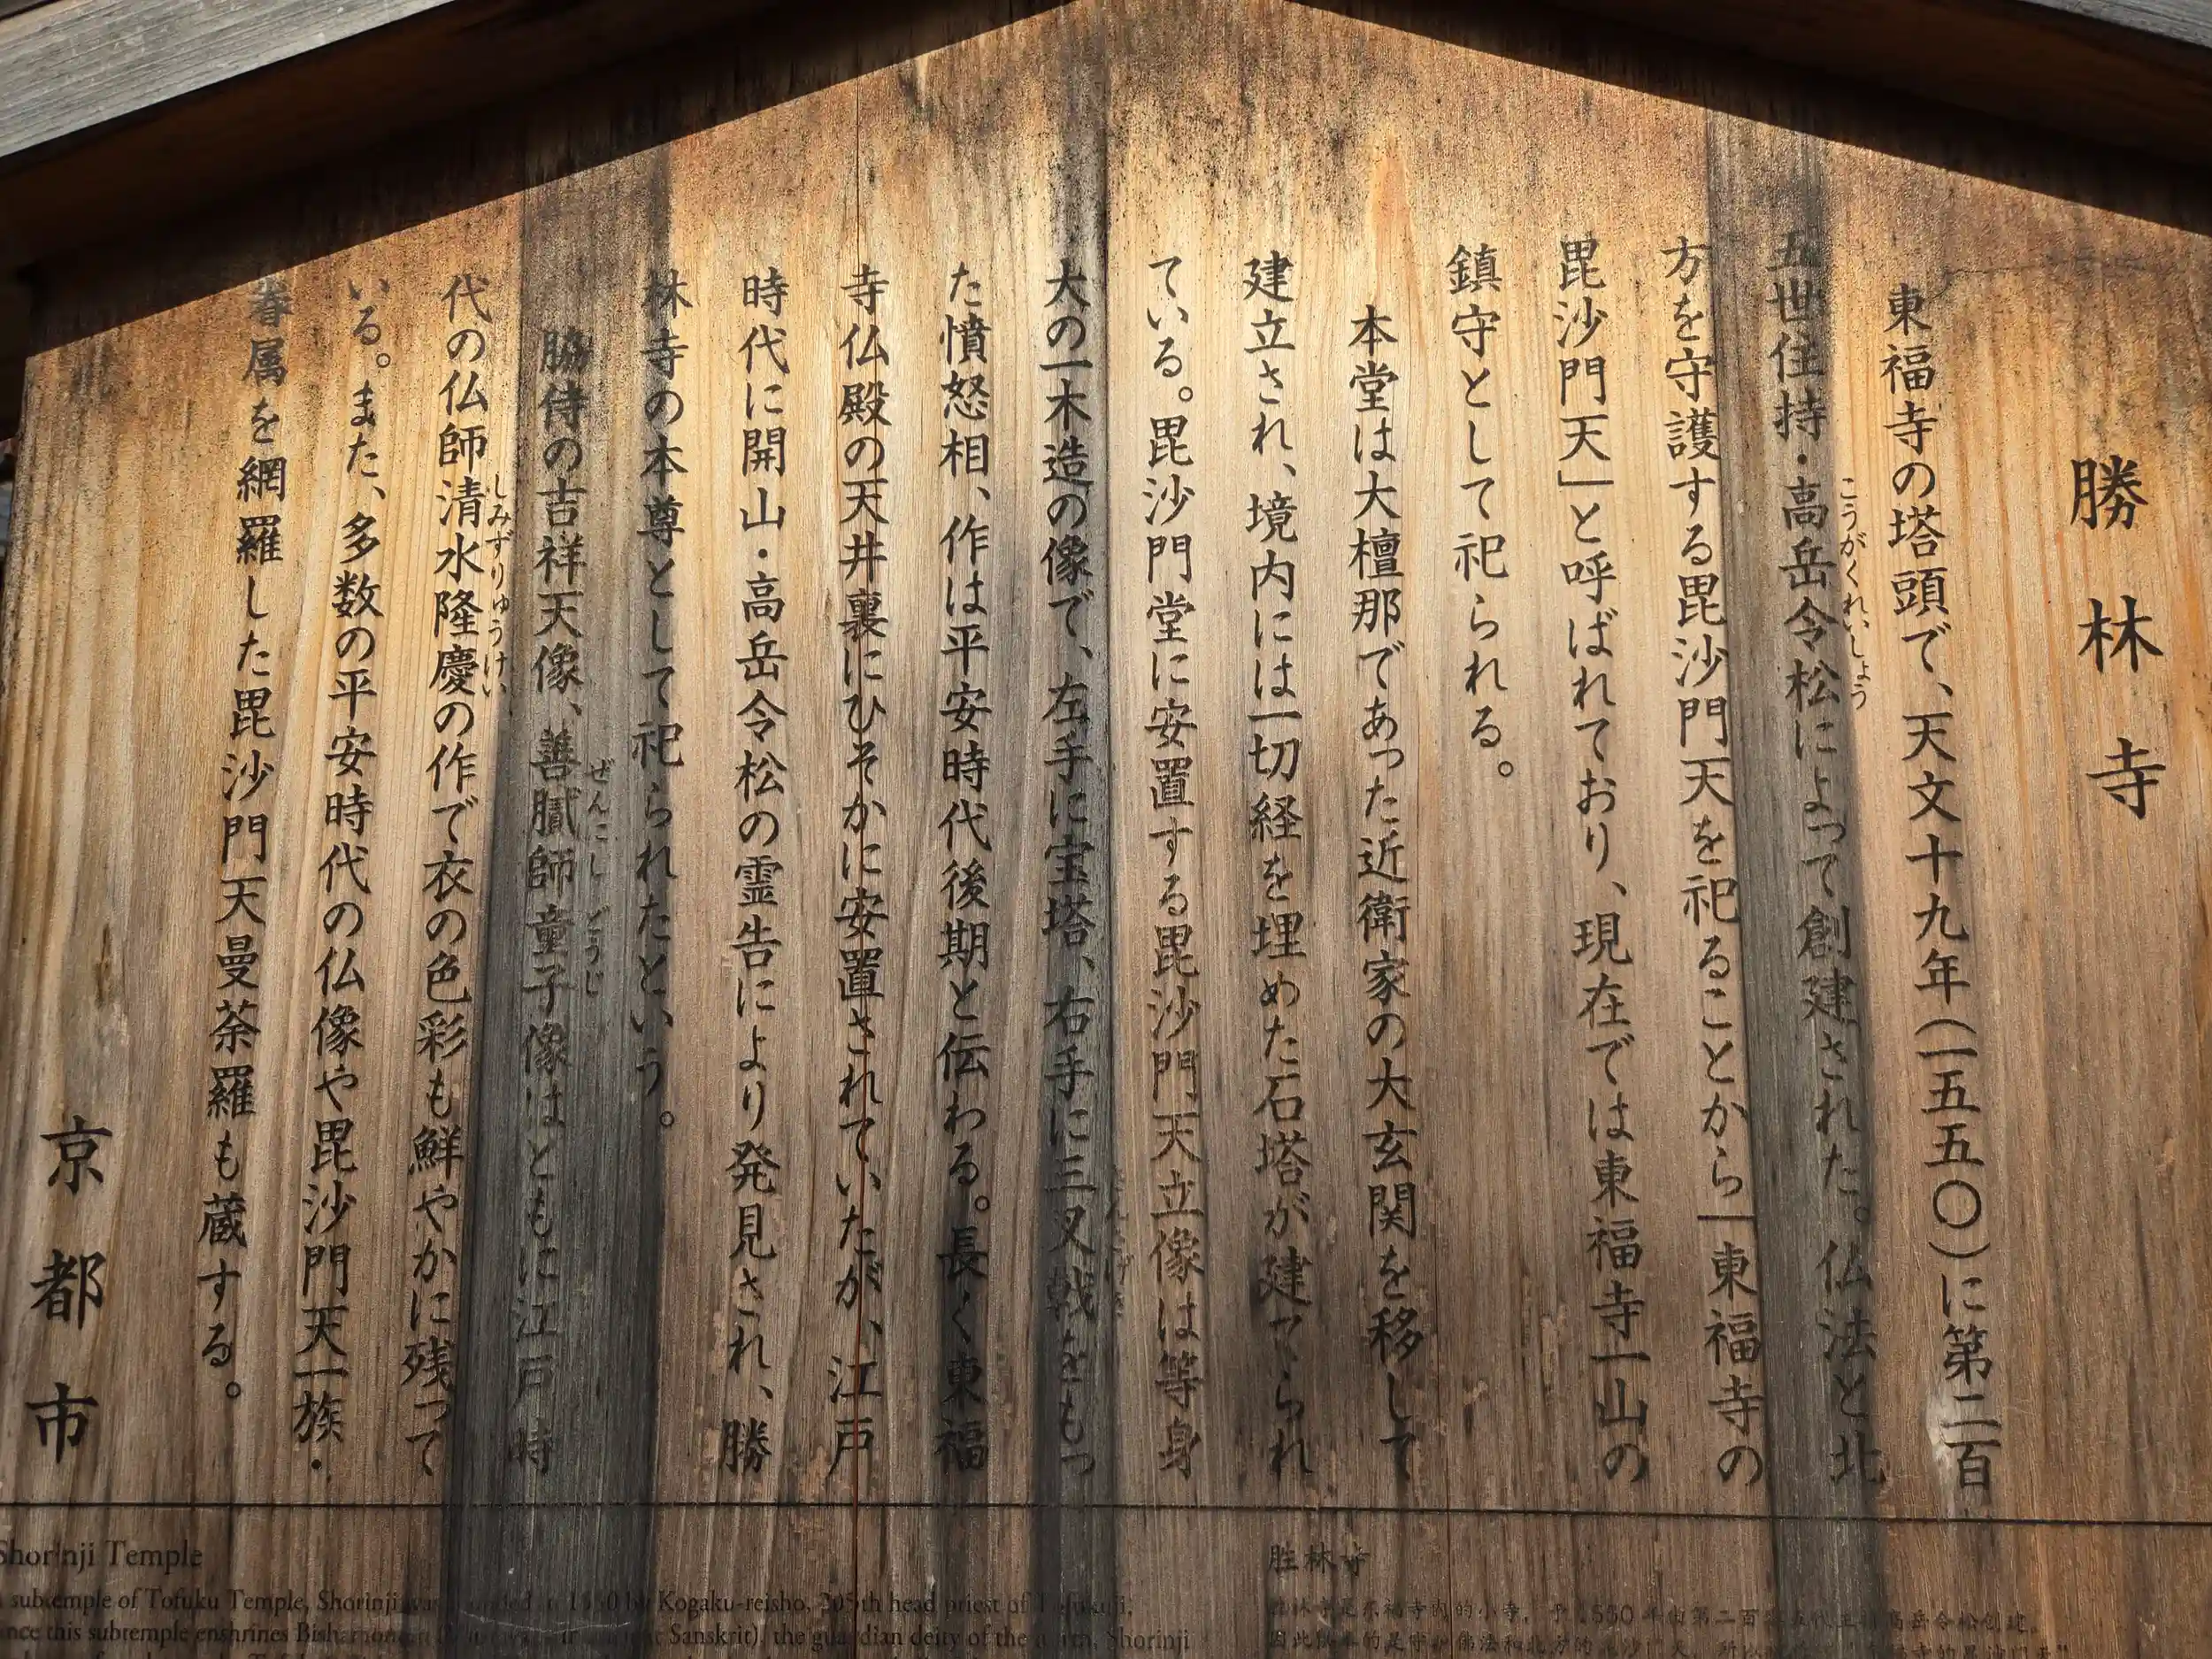 勝林寺
東福寺の塔頭で、天文十九年(一五五〇)に第二百
五世住持・高岳令松によって創建された。仏法と北
こうがくれいしょう
方を守護する毘沙門天を祀ることから「東福寺の
毘沙門天」と呼ばれており、現在では東福寺一山の
鎮守として祀られる。
本堂は大檀那であった近衛家の大玄関を移して
建立され、境内には一切経を埋めた石塔が建てられ
ている。毘沙門堂に安置する毘沙門天立像は等身
大の一木造の像で、左手に宝塔、右手に三叉戟をもっ
た憤怒相、作は平安時代後期と伝わる。長く東福
寺仏殿の天井裏にひそかに安置されていたが、江戸
時代に開山・高岳令松の霊告により発見され、勝
林寺の本尊として祀られたという。
脇侍の吉祥天像、善膩師童子像はともに江戸時
ぜんにし どうじ
代の仏師清水隆慶の作で衣の色彩も鮮やかに残って
しみずりゅうけい
いる。また、多数の平安時代の仏像や毘沙門天一族・
眷属を網羅した毘沙門天曼荼羅も蔵する。
京都市
Shorinji Temple
subtemple of Tofuku Temple, Shorinji was founded in 1550 by Kogaku-reisho, 205th head priest of Tofukuji.
this subtemple enshrines Bishamonten Sanskrit), the guardian deity of the north, Shorinji
胜林寺